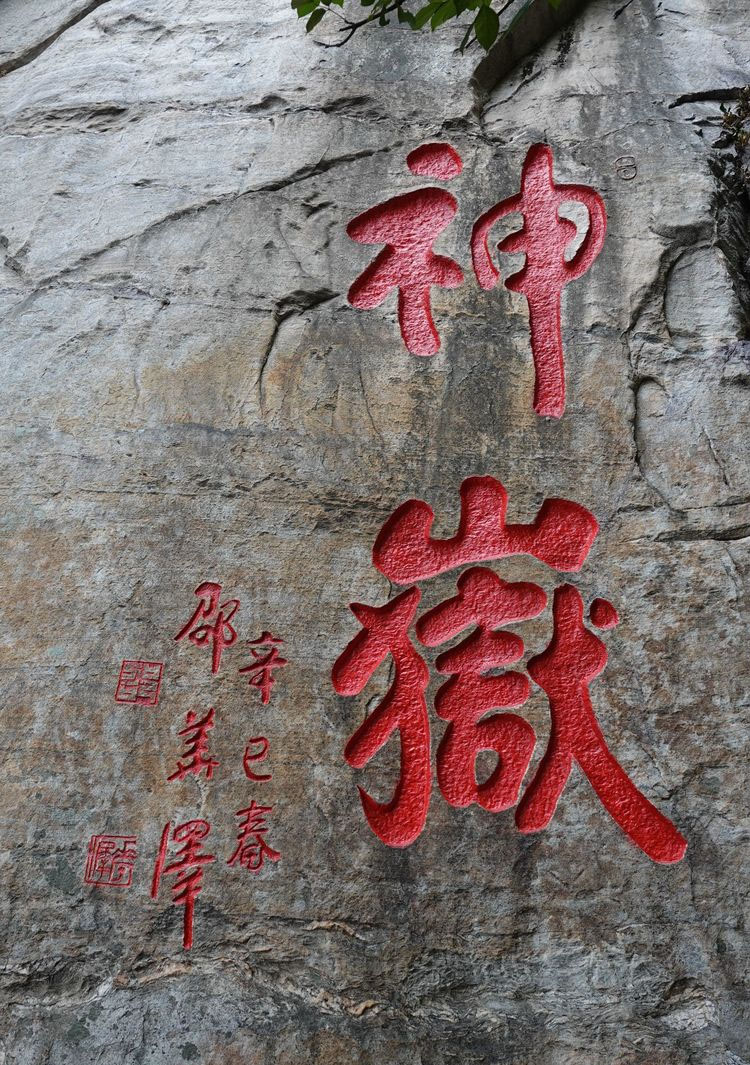 神嶽
辛巳春
邵華澤